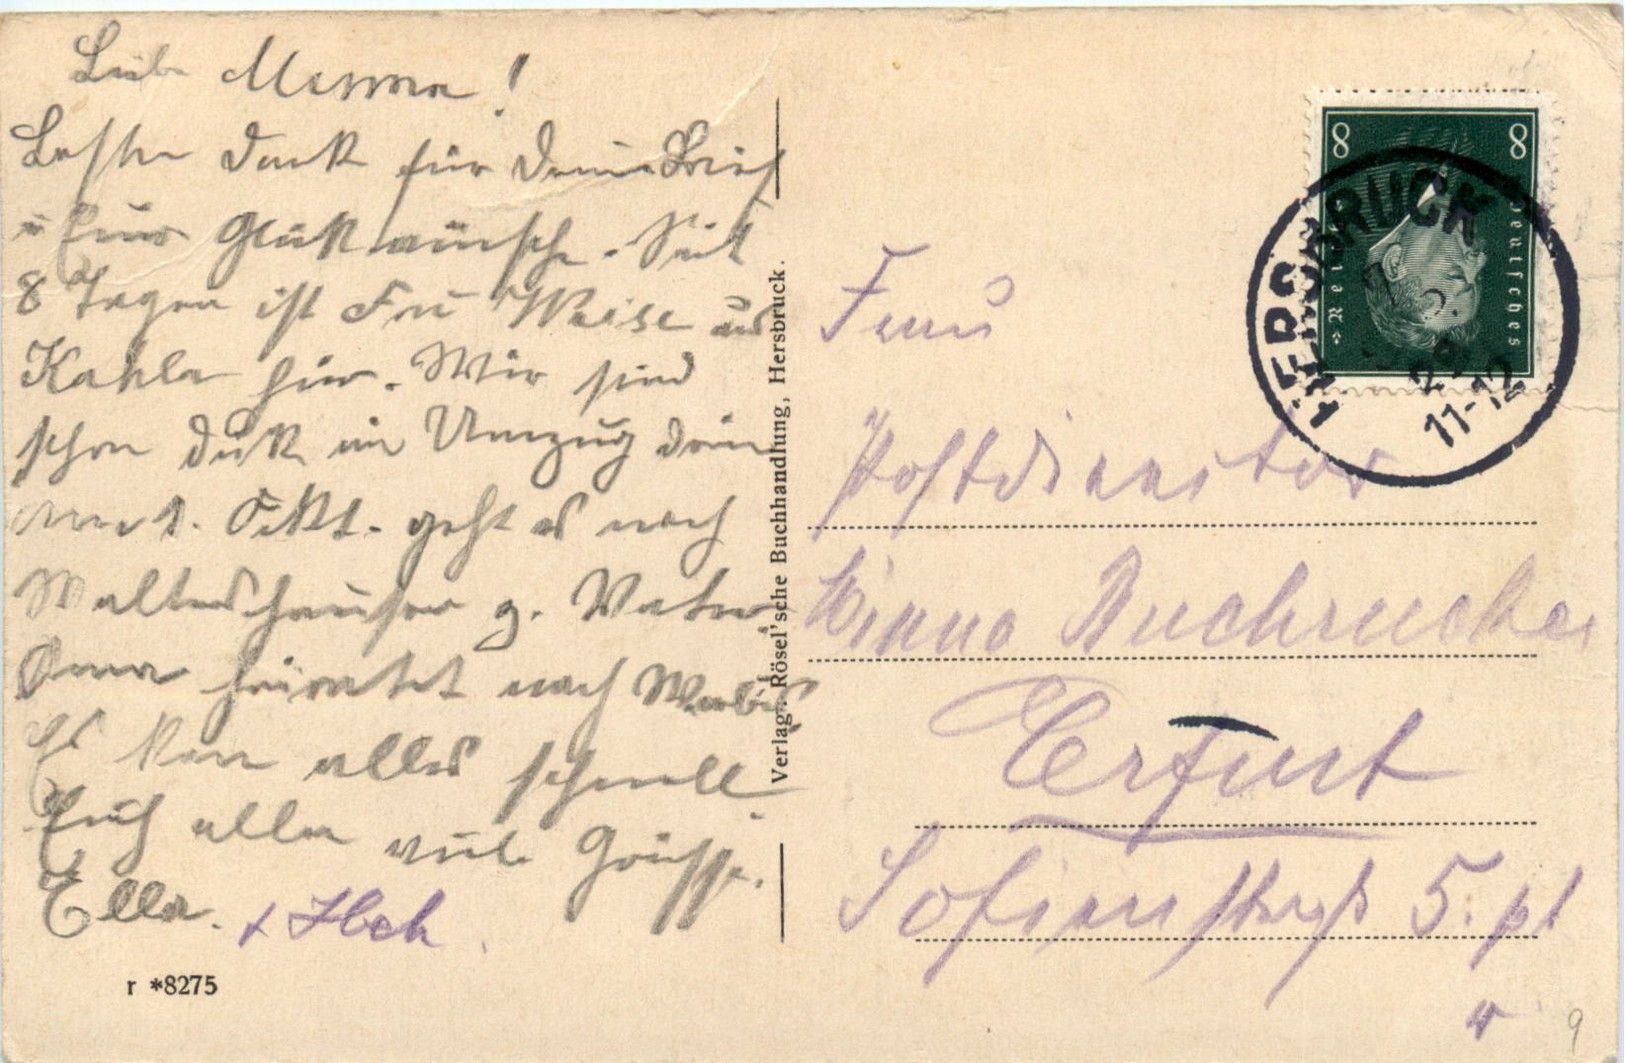 Liebe Mama!
Besten Dank für Deinen Brief
u. Eure Glückwünsche. Seit
8 Tagen ist Frl. Weise aus
Kahla hier. Wir sind
schon dick im Umzug drin
1. Okt. geht es nach
Waltershausen z. Vater.
Oma heiratet nach
Es kam alles schnell.
Euch allen viele Grüsse.
Ella. +
r *8275
Verlag: Rösel'sche Buchhandlung, Hersbruck.
8 8
Deutsches
Reich
HERSBRUCK
29
11-12
Frau
Minna Buchrucker
Erfurt
Sofienstraße 5. pt
r
9